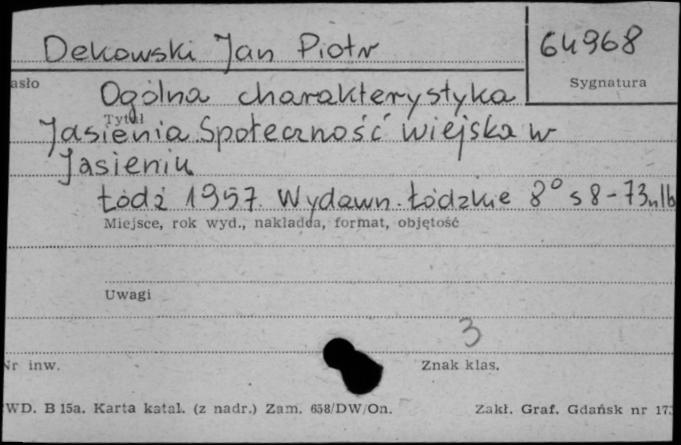 Dekowski Jan Piotr
64968
asło
Sygnatura
Ogólna charakterystyka
Tytuł
Jasienia. Społeczność wiejska w
Jasieniu
Łódź 1957. Wydawn. Łódzkie 8° s 8-73nlb
Miejsce, rok wyd., nakładca, format, objętość
Uwagi
3
Nr inw.
Znak klas.
WD. B 15a. Karta katal. (z nadr.) Zam. 658/DW/On.
Zakł. Graf. Gdańsk nr 173